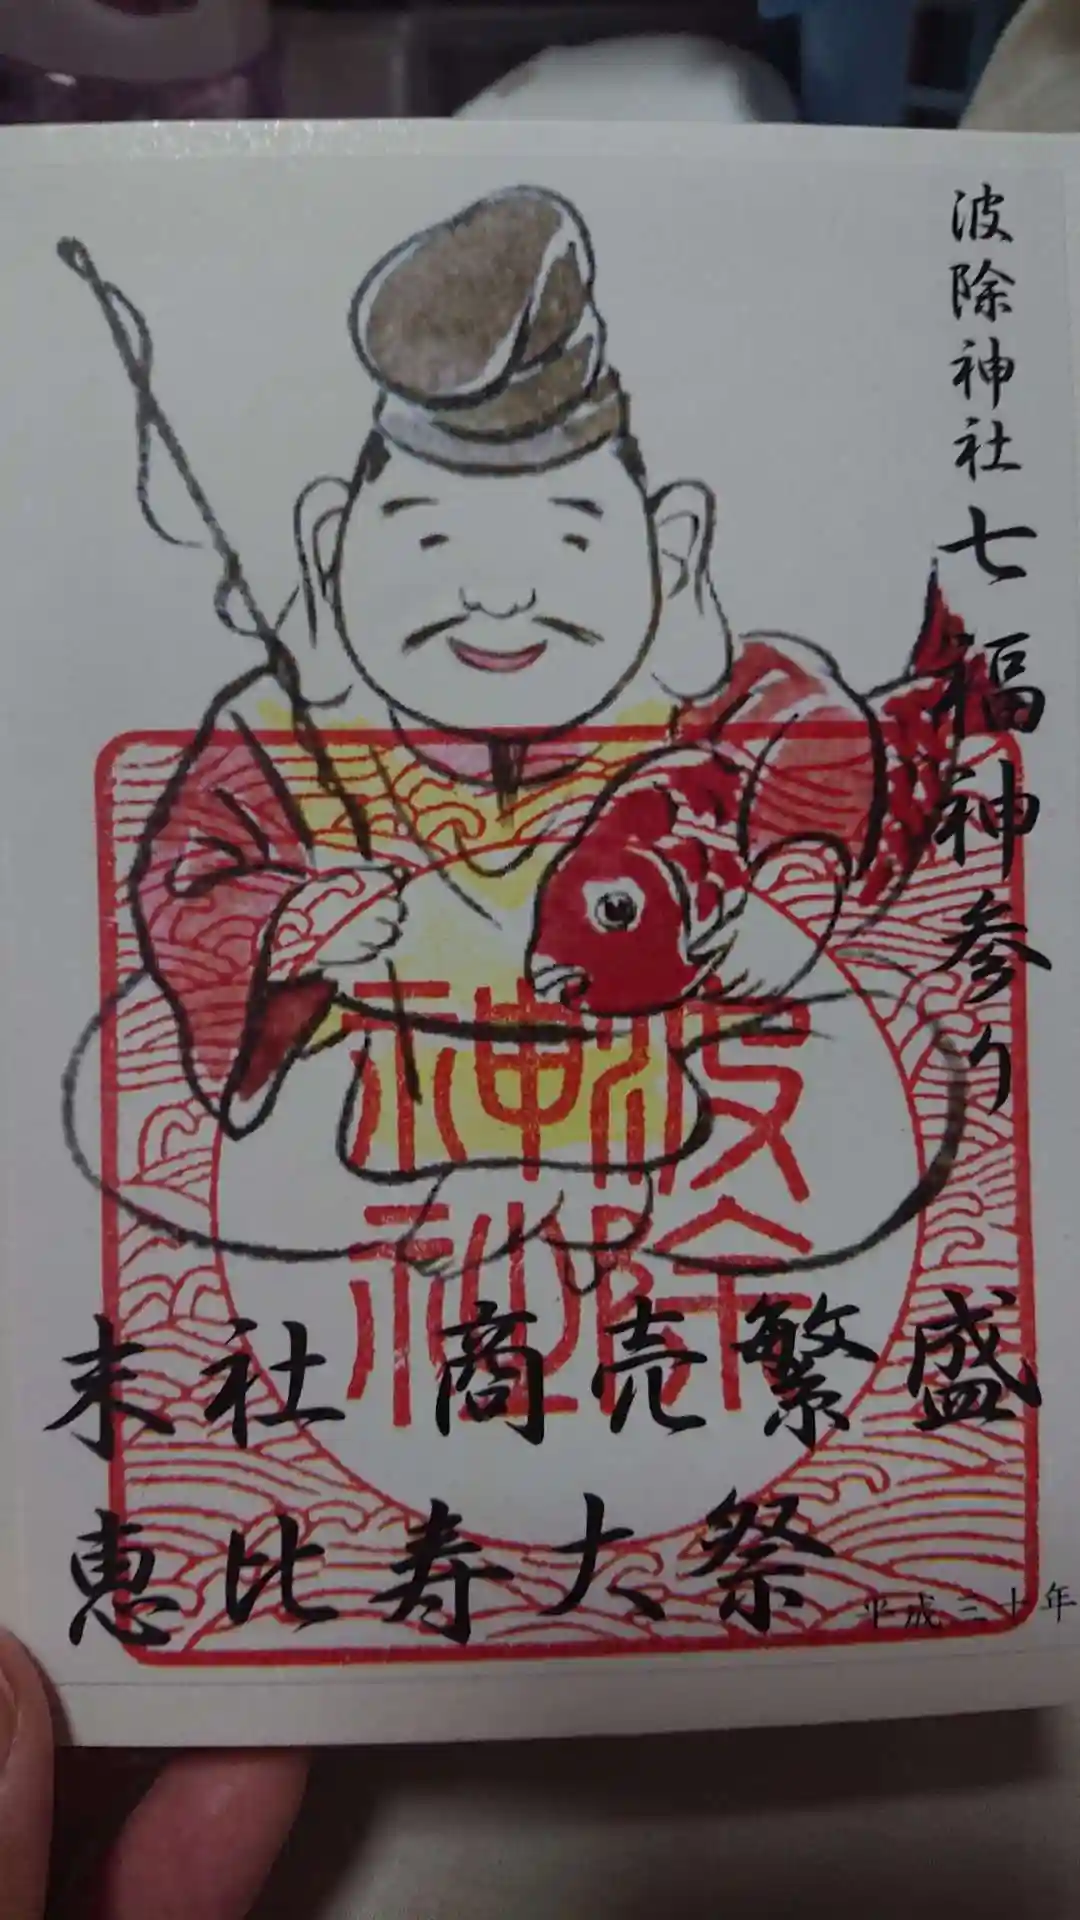 波除神社七福神参り
波除
神社
末社 商売繁盛
恵比寿大祭
平成三十年